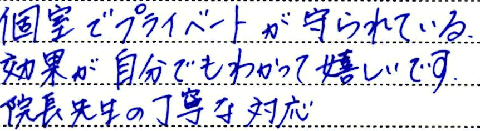 個室でプライベートが守られている.
効果が自分でもわかって嬉しいです.
院長先生の丁寧な対応